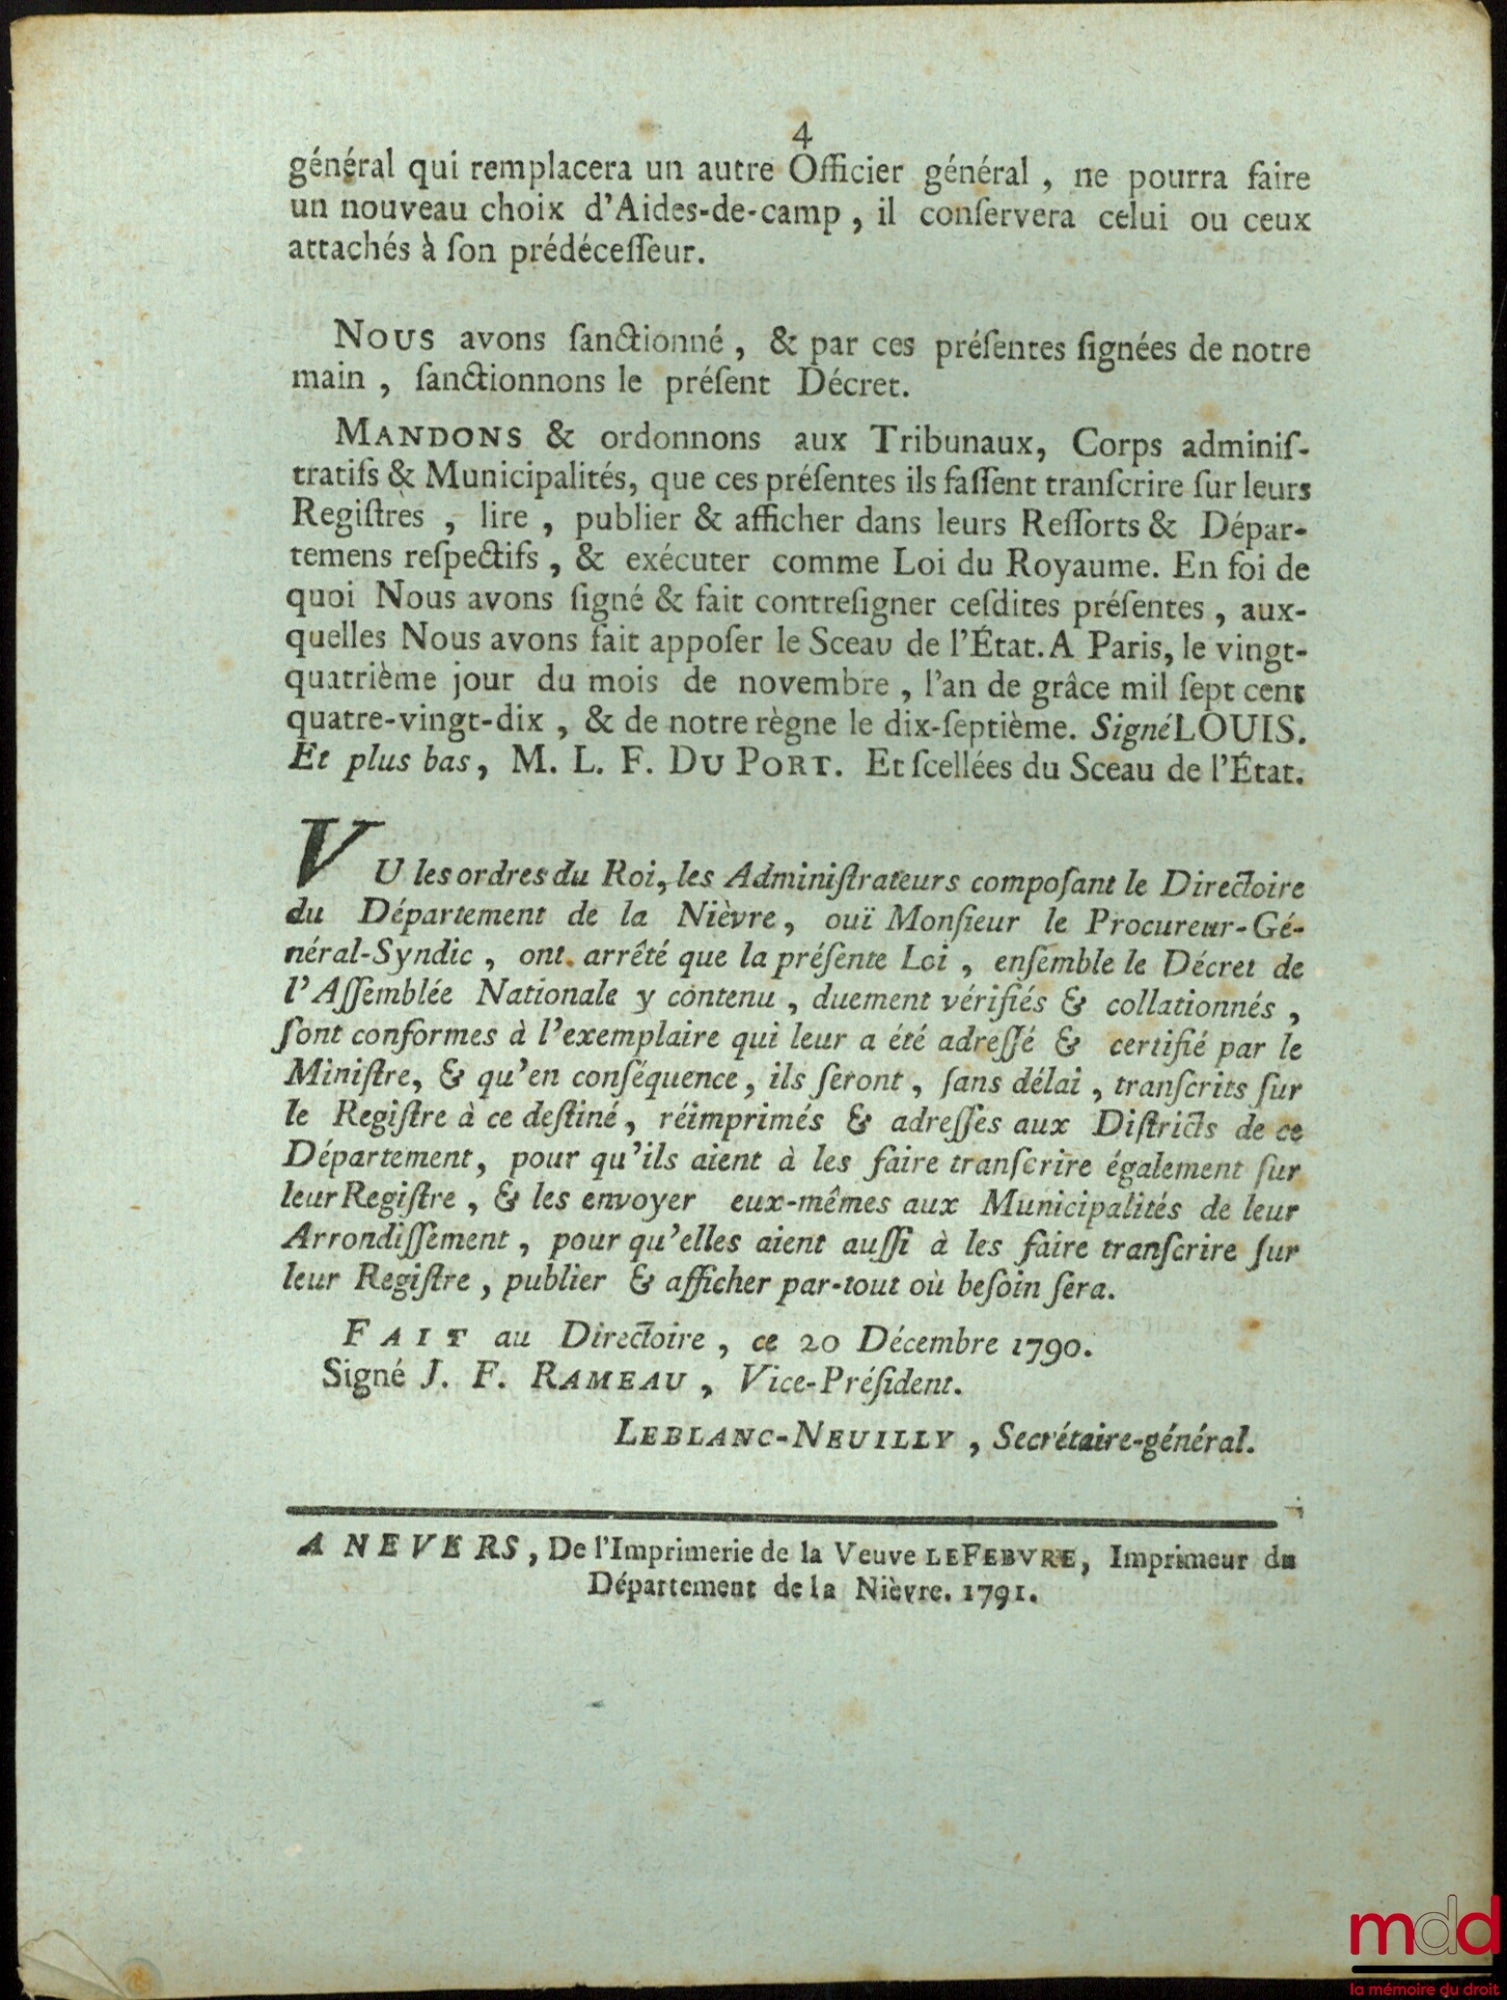 4
général qui remplacera un autre Officier général , ne pourra faire
un nouveau choix d'Aides-de-camp , il conſervera celui ou ceux
attachés à ſon prédéceſſeur.
NOUS avons ſanctionné , & par ces préſentes ſignées de notre
main , ſanctionnons le préſent Décret.
MANDONS & ordonnons aux Tribunaux, Corps adminiſ-
tratifs & Municipalités, que ces préſentes ils faſſent tranſcrire ſur leurs
Regiſtres , lire , publier & afficher dans leurs Reſſorts & Dépar-
temens reſpectifs , & exécuter comme Loi du Royaume. En foi de
quoi Nous avons ſigné & fait contreſigner ceſdites préſentes , aux-
quelles Nous avons fait appoſer le Sceau de l'État. A Paris, le vingt-
quatrième jour du mois de novembre , l'an de grâce mil ſept cent
quatre-vingt-dix , & de notre règne le dix-ſeptième. Signé LOUIS.
Et plus bas, M. L. F. DU PORT. Et ſcellées du Sceau de l'État.
VU les ordres du Roi, les Adminiſtrateurs compoſant le Directoire
du Département de la Nièvre, ouï Monſieur le Procureur-Gé-
néral-Syndic , ont arrêté que la préſente Loi , enſemble le Décret de
l'Aſſemblée Nationale y contenu , duement vérifiés & collationnés ,
ſont conformes à l'exemplaire qui leur a été adreſſé & certifié par le
Miniſtre, & qu'en conſéquence, ils ſeront, ſans délai , tranſcrits ſur
le Regiſtre à ce deſtiné, réimprimés & adreſſes aux Diſtricts de ce
Département, pour qu'ils aient à les faire tranſcrire également ſur
leur Regiſtre , & les envoyer eux-mêmes aux Municipalités de leur
Arrondiſſement , pour qu'elles aient auſſi à les faire tranſcrire ſur
leur Regiſtre , publier & afficher par-tout où beſoin ſera.
FAIT au Directoire , ce 20 Décembre 1790.
Signé J. F. RAMEAU , Vice-Préſident.
LEBLANC-NEUILLY , Secrétaire-général.
A NEVERS, De l'Imprimerie de la Veuve LEFEBVRE, Imprimeur du
Département de la Nièvre. 1791.
mdd
la mémoire du droit